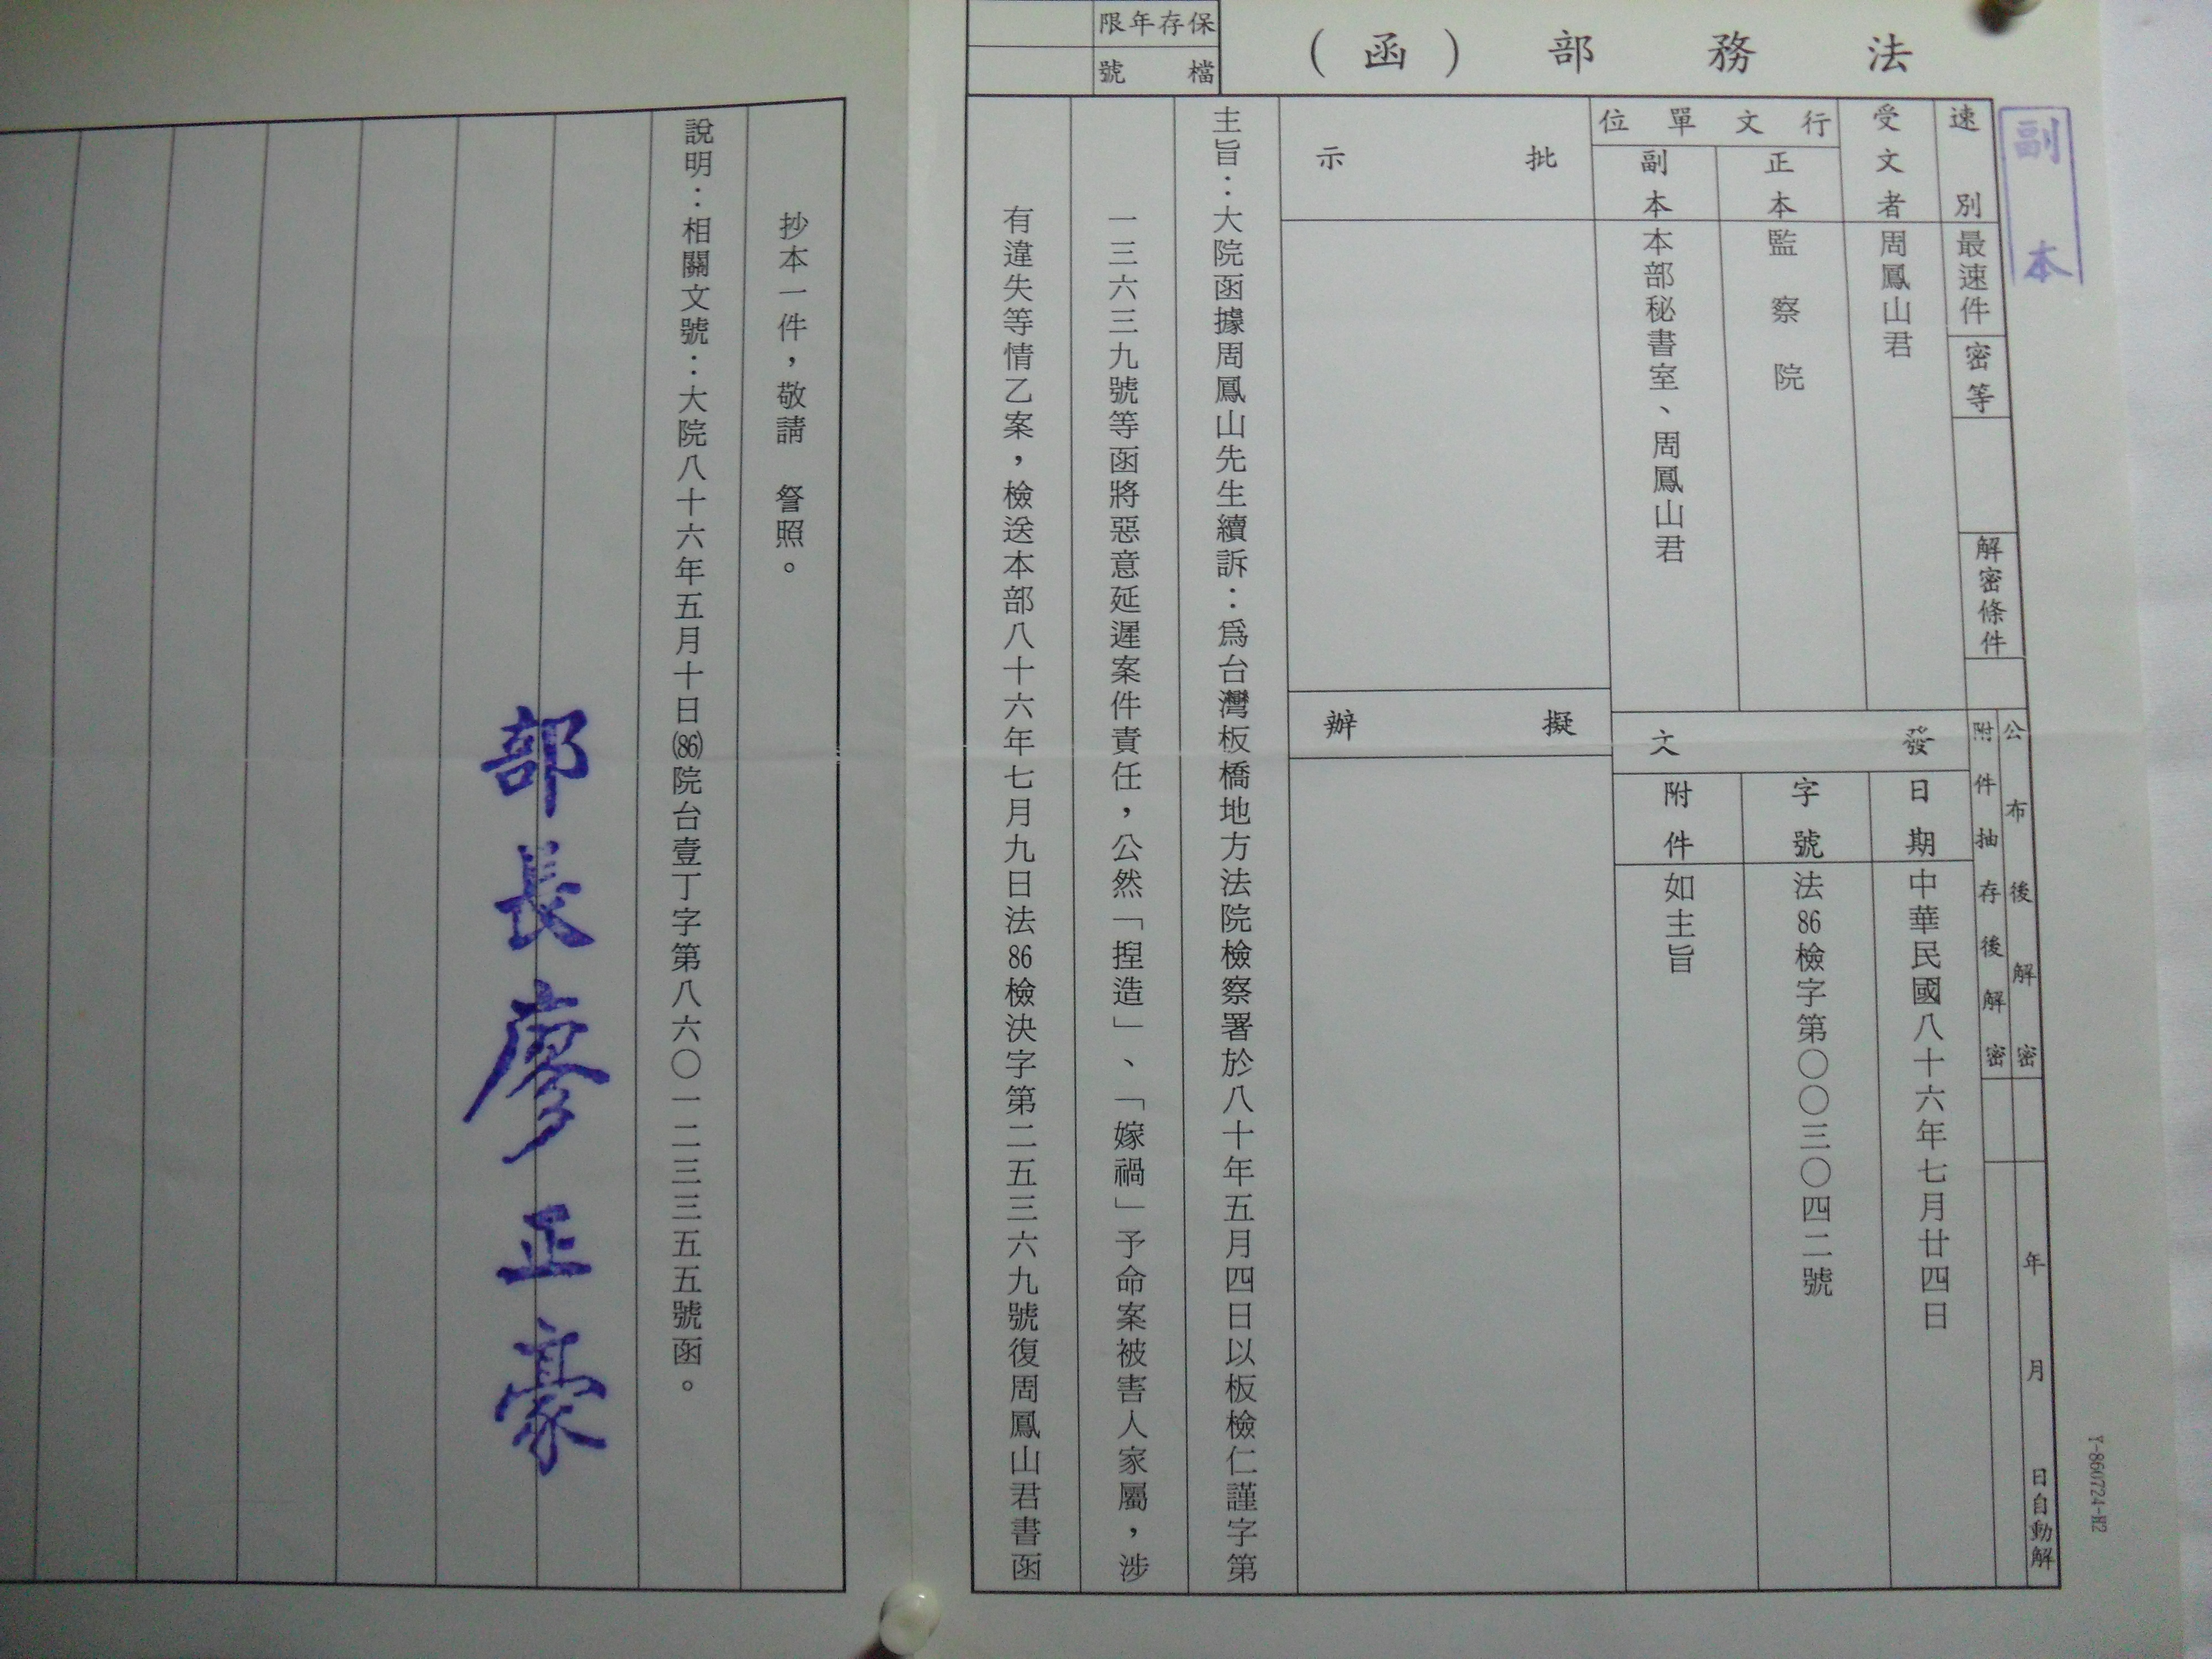 法務部（函）
保存年限
檔號
副本
速別
最速件
密等
解密條件
公布後解密
附件抽存後解密
年月日自動解
受文者
周鳳山君
行文單位
正本
監察院
副本
本部秘書室、周鳳山君
發文
日期
中華民國八十六年七月廿四日
字號
法86檢字第〇〇三〇四二號
附件
如主旨
批示
擬辦
主旨：大院函據周鳳山先生續訴：爲台灣板橋地方法院檢察署於八十年五月四日以板檢仁謹字第
一三六三九號等函將惡意延遲案件責任，公然「揑造」、「嫁禍」予命案被害人家屬，涉
有違失等情乙案，檢送本部八十六年七月九日法86檢決字第二五三六九號復周鳳山君書函
抄本一件，敬請　詧照。
說明：相關文號：大院八十六年五月十日(86)院台壹丁字第八六〇一二三三五五號函。
部長廖正豪
Y-860724-H2